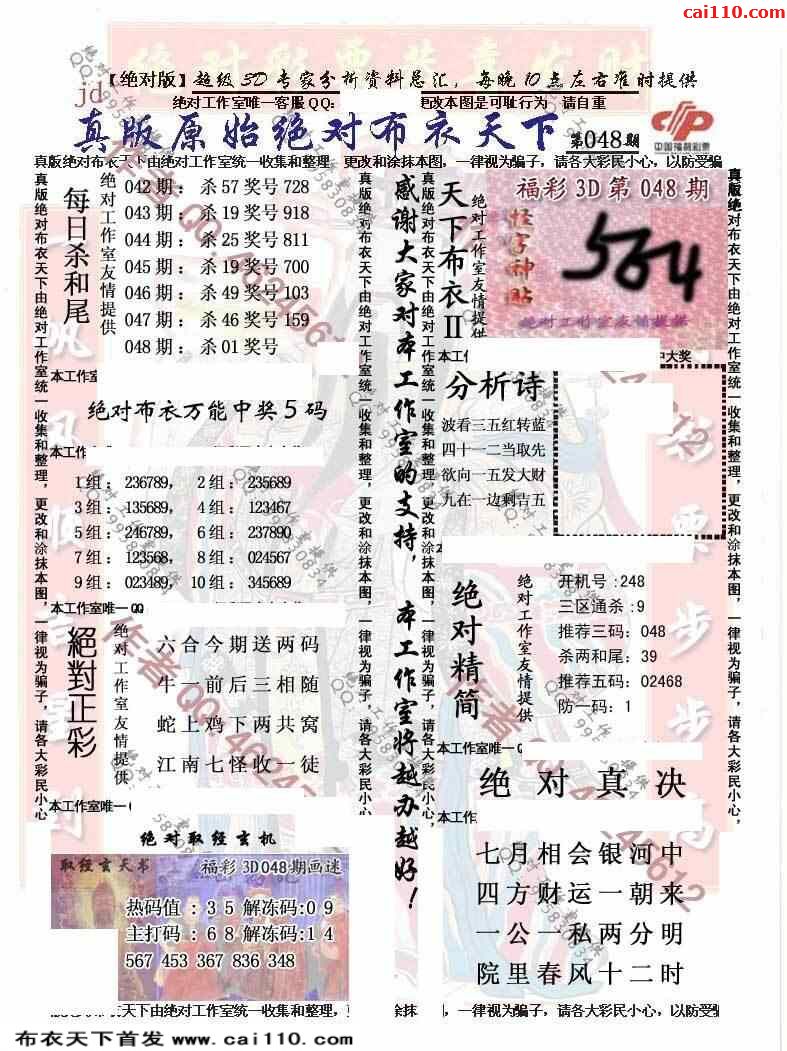 cai110.com
【绝对版】超级3D专家分析资料总汇，每晚10点左右准时提供
jd
绝对工作室唯一客服QQ:
更改本图是可耻行为 请自重
真版原始绝对布衣天下
第048期
中国福利彩票
真版绝对布衣天下由绝对工作室统一收集和整理，更改和涂抹本图，一律视为骗子，请各大彩民小心，以防受骗
每日杀和尾
绝对工作室友情提供
042期：杀57奖号728
043期：杀19奖号918
044期：杀25奖号811
045期：杀19奖号700
046期：杀49奖号103
047期：杀46奖号159
048期：杀01奖号
本工作室
绝对布衣万能中奖5码
本工作
1组：236789，2组：235689
3组：135689，4组：123467
5组：246789，6组：237890
7组：123568，8组：024567
9组：023489，10组：345689
本工作室唯一QQ
絕對正彩
绝对工作室友情提供
六合今期送两码
牛一前后三相随
蛇上鸡下两共窝
江南七怪收一徒
本工作室唯一
绝对取经玄机
取经玄天书
福彩3D048期画迷
热码值：35解冻码:09
主打码：68解冻码:14
567 453 367 836 348
真版绝对布衣天下由绝对工作室统一收集和整理，更改和涂抹本图，一律视为骗子，请各大彩民小心，
感谢大家对本工作室的支持，本工作室将越办越好！
天下布衣II
绝对工作室友情提供
福彩3D第048期
怪字神贴
564
绝对工作室友情提供
本工作
中大奖
分析诗
波看三五红转蓝
四十一二当取先
欲向一五发大财
九在一边剩吉五
绝对精简
绝对工作室友情提供
开机号:248
三区通杀:9
推荐三码:048
杀两和尾:39
推荐五码:02468
防一码:1
本工作室唯一
绝对真决
本工作
七月相会银河中
四方财运一朝来
一公一私两分明
院里春风十二时
天下由绝对工作室统一收集和整理，
涂抹本图，一律视为骗子，请各大彩民小心，以防受骗
布衣天下首发 www.cai110.com